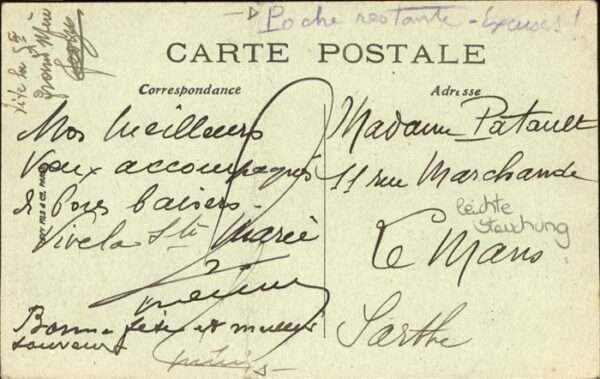 Poche restante - Excuses!
Vive la Ste
grand'Mère
CARTE POSTALE
Correspondance
Adresse
Mos meilleurs
Vœux accompagnés
de bons baisers.
Vive la Ste Marie
Bonne fête et meilleur
souvenir
Madame Patault
11 rue Marchande
leichte
Stauchung
Le Mans
Sarthe